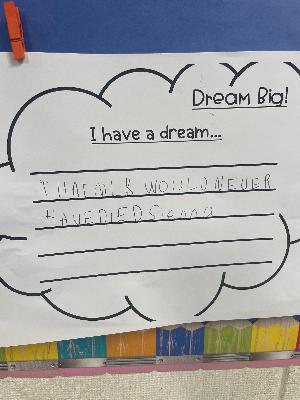 Dream Big!
I have a dream...
THAT MLK WOULD NEVER
HAVE DIED Sienna